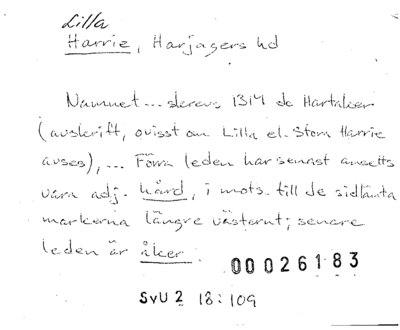 Lilla
Harrie, Harjagers hd
Namnet... skrevs 1314 de Hartaker
(avskrift, ovisst om Lilla el. Stora Harrie
avses), ... Förra leden har senast ansetts
vara adj. hård, i mots. till de sidlänta
markerna längre västerut; senare
leden är åker.
00026183
SvU 2 18:109